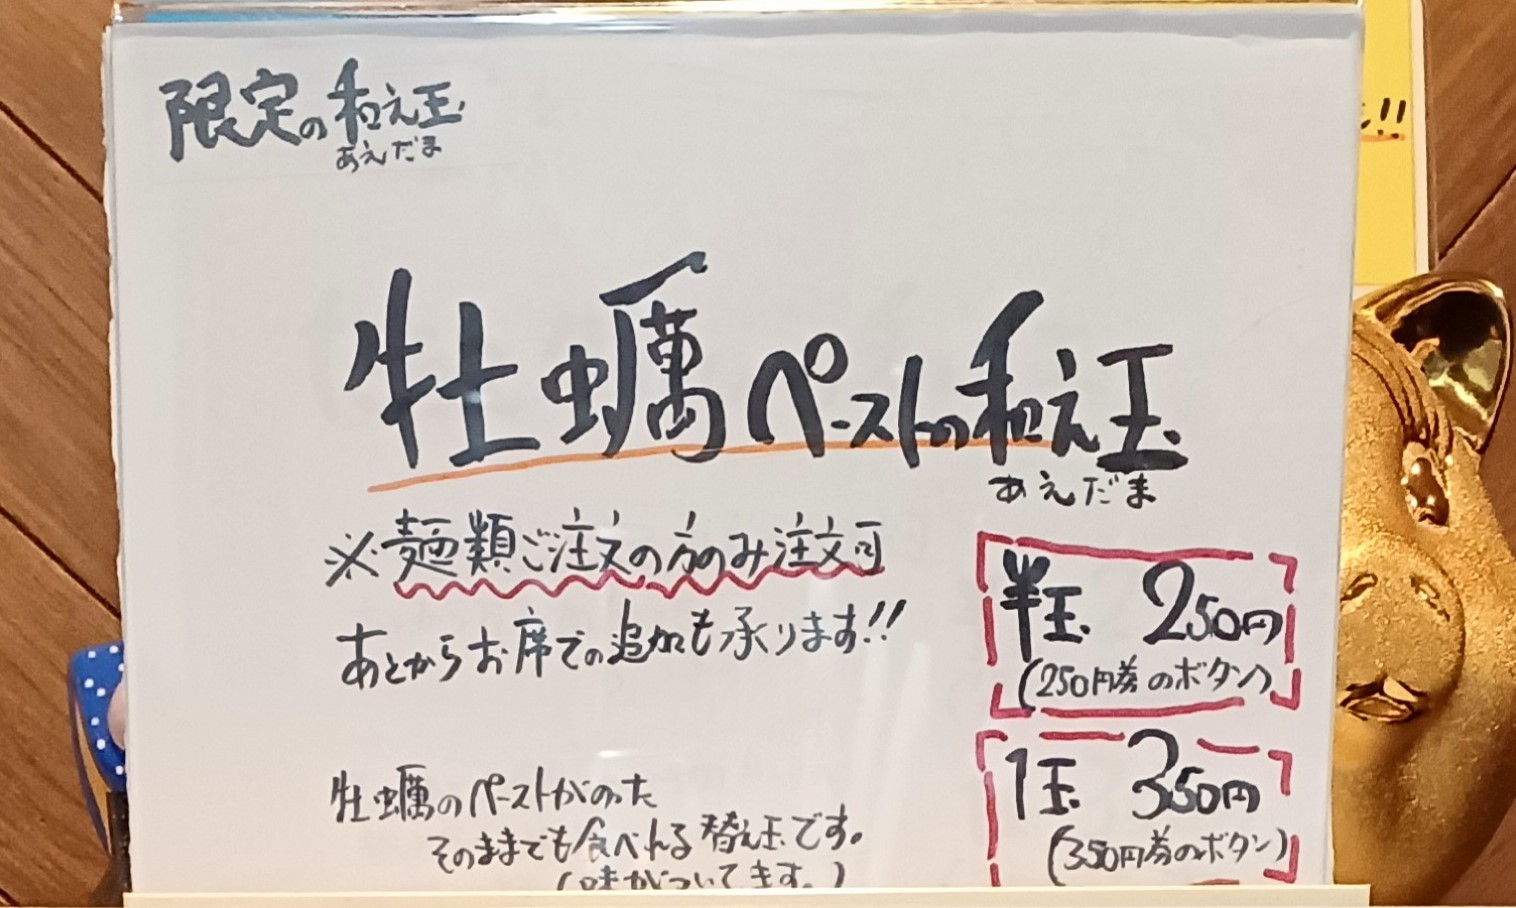 限定の和え玉
あえだま
牡蠣ペーストの和え玉
あえだま
※麺類ご注文の方のみ注文可
あとからお席での追加も承ります!!
半玉 250円
(250円券のボタン)
1玉 350円
(350円券のボタン)
牡蠣のペーストがのった
そのままでも食べれる替え玉です。
(味がついてます。)
!!